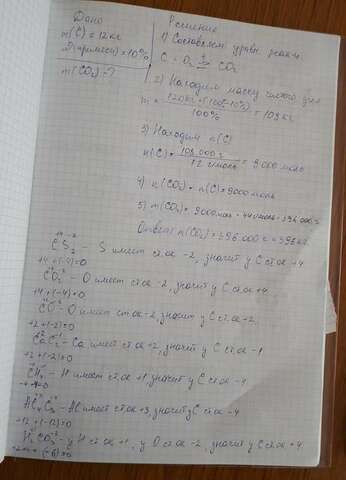 Дано
m(C) = 12 кг
ω(примеси) = 10%
m(CO₂) - ?
Решение
1) Составляем уравн. реакц.
C + O₂ → CO₂
2) Находим массу чистого
m = 120 кг · (100% - 10%) / 100% = 108 кг
3) Находим n(C)
n(C) = 108 000 г / 12 г/моль = 9000 моль
4) n(CO₂) = n(C) = 9000 моль
5) m(CO₂) = 9000 моль · 44 г/моль = 396 000 г
Ответ: m(CO₂) = 396 000 г = 396 кг
CS₂ - S имеет ст.ок -2, значит у C ст.ок +4
+4 + (-4) = 0
CO₂ - O имеет ст.ок -2, значит у C ст.ок +4
+4 + (-4) = 0
CO - O имеет ст.ок -2, значит у C ст.ок +2,
+2 + (-2) = 0
CaC₂ - Ca имеет ст.ок +2, значит у C ст.ок -1
+2 + (-2) = 0
CH₄ - H имеет ст.ок +1 значит у C ст.ок -4
-4 + 4 = 0
Al₄C₃ - Al имеет ст.ок +3, значит у C ст.ок -4
+12 + (-12) = 0
H₂CO₃ - у H ст.ок +1, у O ст.ок -2, значит у C ст.ок +4
+2 +4 + (-6) = 0